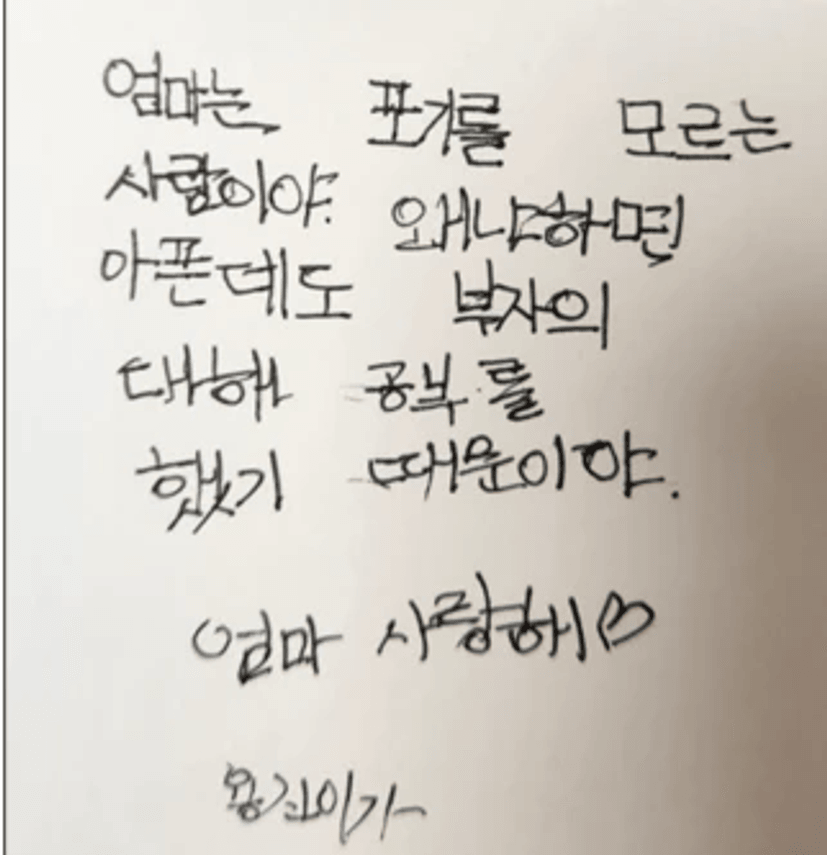 엄마는 포기를 모르는
사람이야. 왜냐하면
아픈데도 부자의
대해 공부를
했기 때문이야.
엄마 사랑해♡